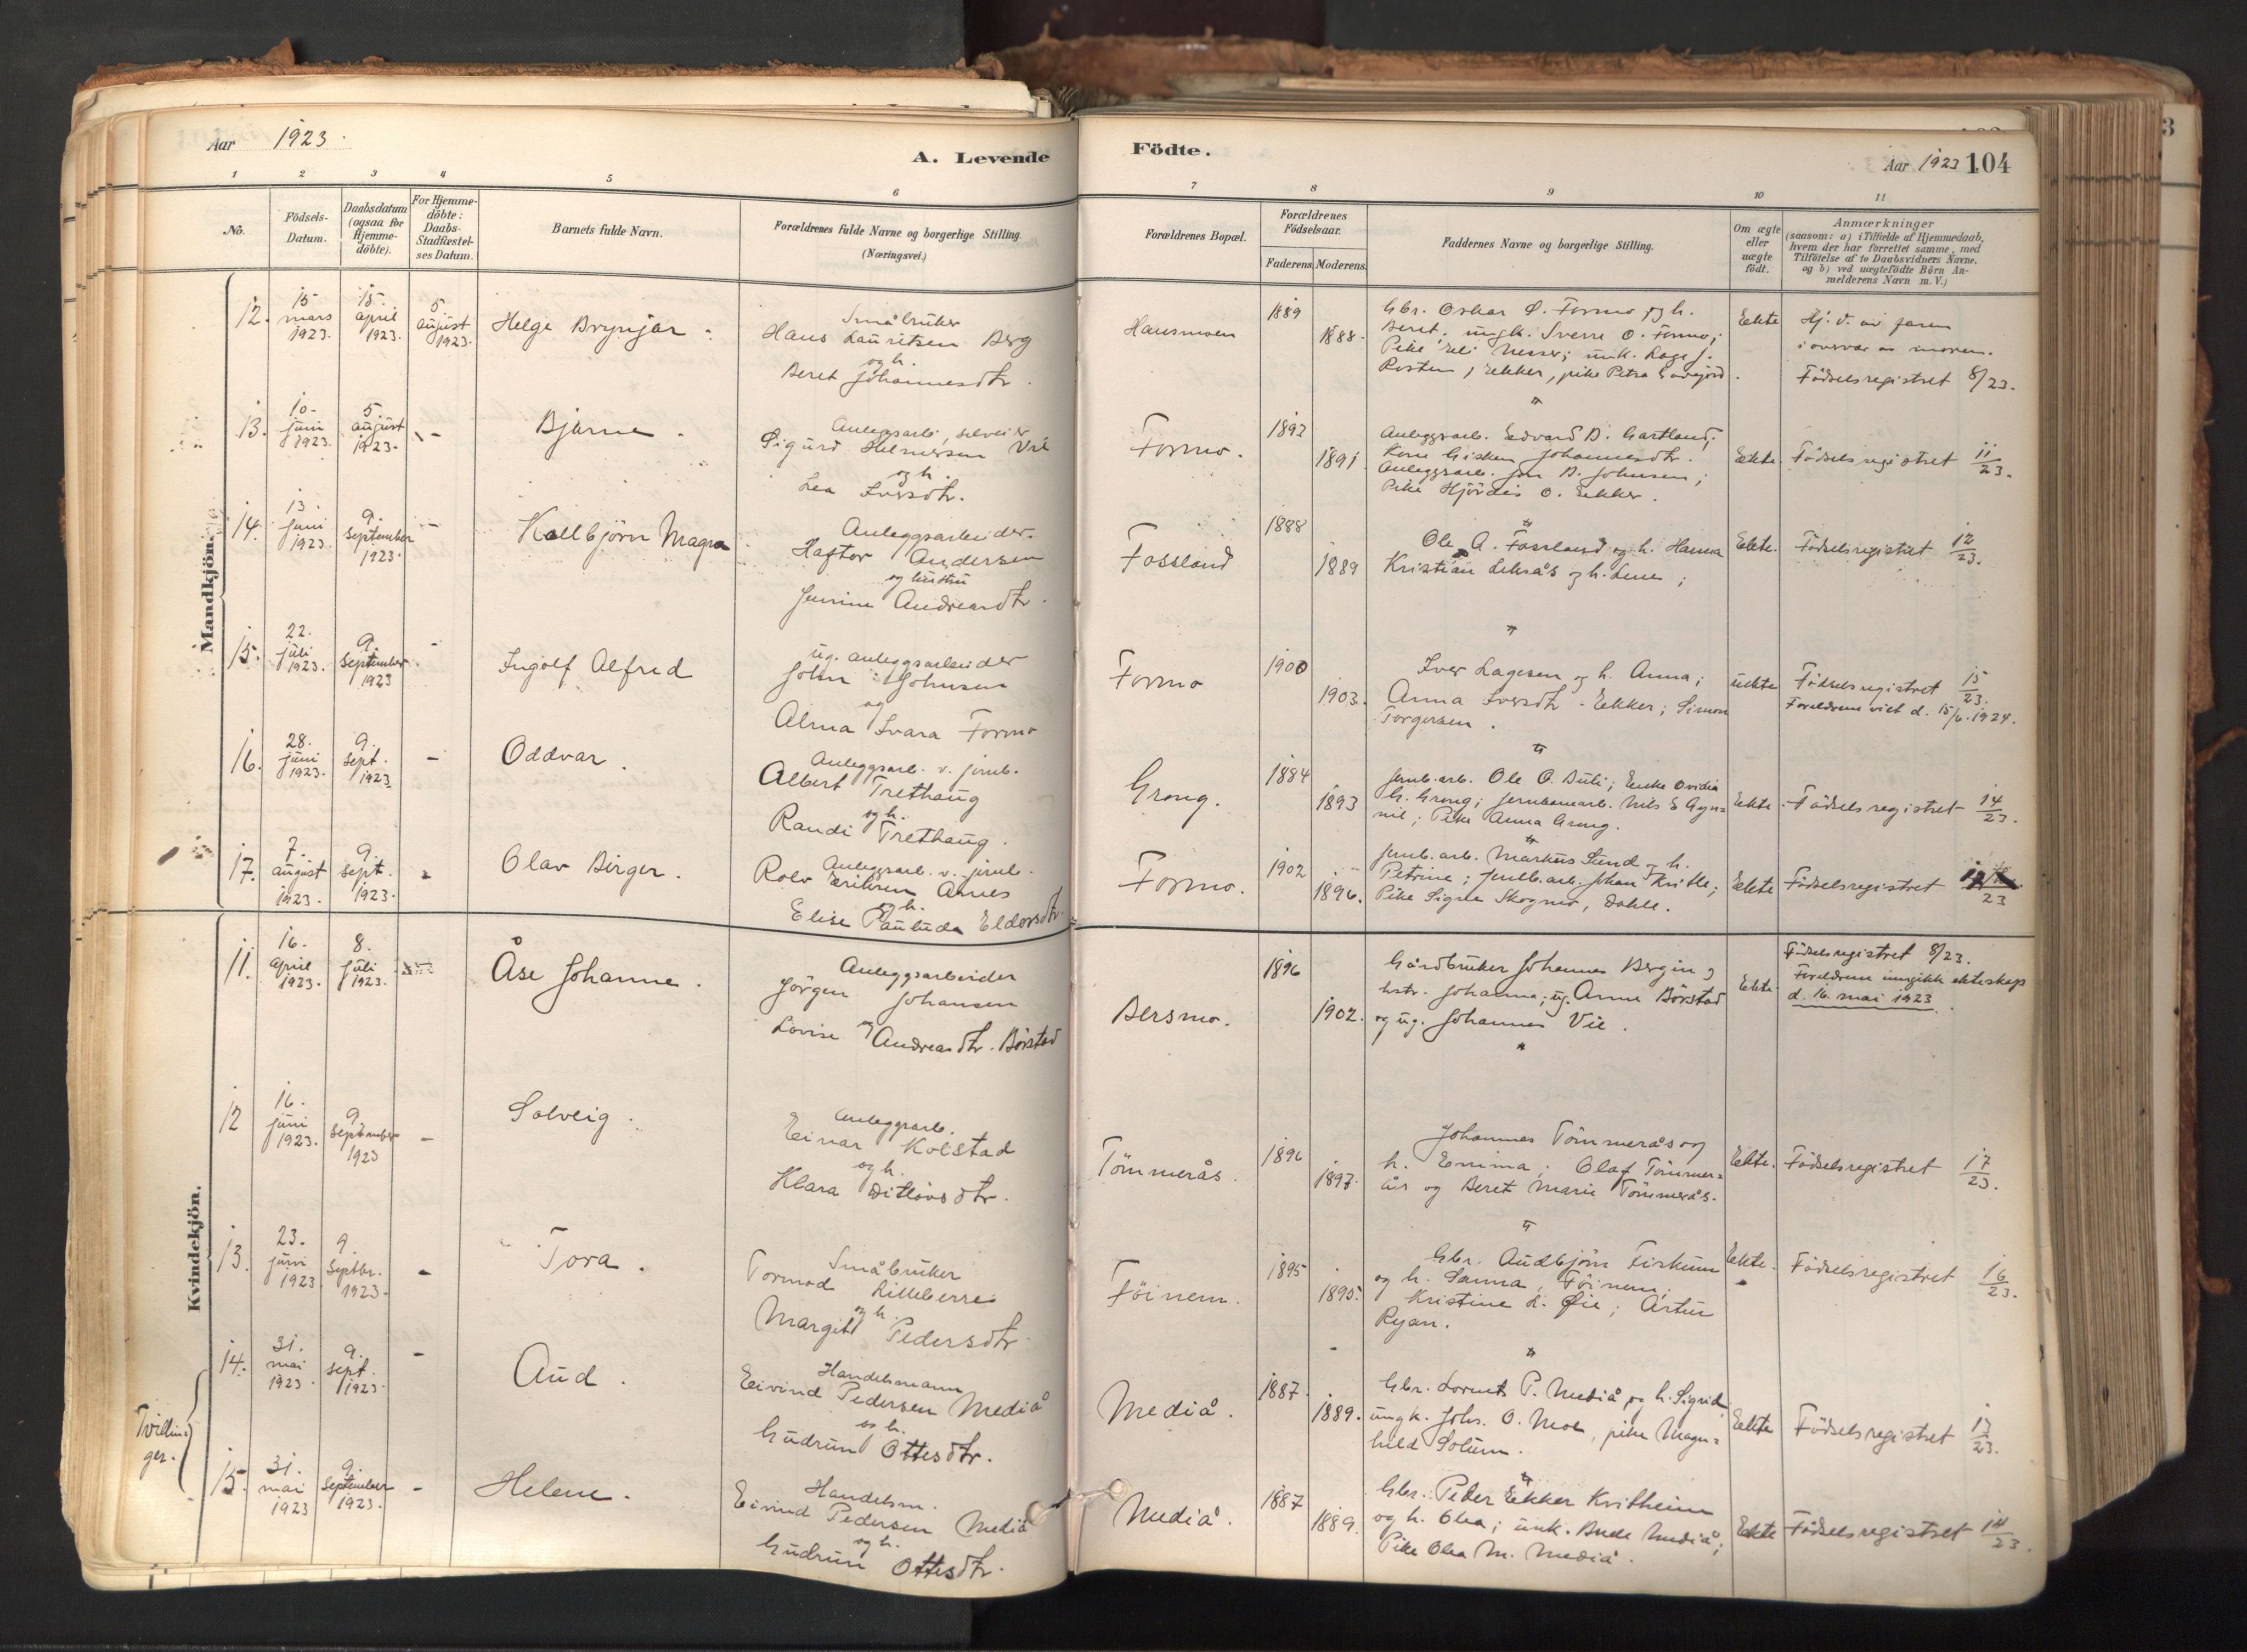 Aar 1923.
A. Levende
Födte.
Aar 1923 104
1 2 3 4 5 6 7 8 9 10 11
No. Födsels-Datum. Daabsdatum (ogsaa for Hjemme-döbte). For Hjemme-döbte: Daabs-Stadfæstel-ses Datum. Barnets fulde Navn. Forældrenes fulde Navne og borgerlige Stilling. (Næringsvei.) Forældrenes Bopæl. Forældrenes Födselsaar. Faderens. Moderens. Faddernes Navne og borgerlige Stilling. Om ægte eller uægte födt. Anmærkninger (saasom: a) i Tilfælde af Hjemmedaab, hvem der har forrettet samme, med Tilföielse af to Daabsvidners Navne. og b) ved uægtefödte Börn An-melderens Navn m. V.)
Mandkjön.
12. 15 mars 1923. 15. april 1923. 5. august 1923. Helge Brynjar.
Småbruker
Hans Lauritsen Berg
og h.
Beret Johannesdtr.
Hausmoen 1889 1888.
Gbr. Oskar O. Formo og h.
Beret. ungk. Sverre O. Formo;
Ekte
Hj. d. av faren
i overvær av moren.
Födselsregistret 8/23.
13. 10. juni 1923. 5. august 1923. - Bjarne.
Sigurd Helmersen
og h.
Lea Iversdtr.
Formo. 1893 1891.
Anleggsarb. Edvard D. Gartland;
Kone Gisken Johannesdtr.
Anleggsarb. Jon D. Johnsen;
Pike Hjördis O. Ekker.
Ekte. Födselsregistret 11/23.
14. 13. juni 1923. 9. september 1923. - Kollbjörn Magne
Anleggsarbeider.
Haftor Andersen
og hustru
Jensine Andreasdtr.
Fossland 1888 1889
Ole A. Fossland og h. Hanna
Kristian Leksås og h. Lene;
Ekte. Födselsregistret 12/23.
15. 22. juli 1923. 9. september 1923 - Ingolf Alfred
ug. anleggsarbeider
John Johnsen
og
Alma Ivara Formo
Formo 1900 1903.
Iver Lagesen og h. Anna;
Anna Iversdtr. Ekker; Simon
Torgersen.
uekte Födselsregistret 15/23.
Foreldrene viet d. 15/6. 1924.
16. 28. juni 1923. 9. sept. 1923. - Oddvar.
Anleggsarb. v. jernb.
Albert Trethaug
og h.
Randi Trethaug.
Grong. 1884 1893
Jernb.arb. Ole O. Buli; Enke Ovidia
G. Grong;
Pike Anna Grong.
Ekte. Födselsregistret 14/23.
17. 7. august 1923. 9. sept. 1923. - Olav Birger.
Anleggsarb. v. jernb.
Rolv Eriksen Aunes
og h.
Elise Pauluda Eldorsdtr.
Formo. 1902 1896.
Jernb.arb. Markus Sund og h.
Petrine; jernb.arb. Johan
Pike Signe Skogmo,
Ekte Födselsregistret
Kvindekjön.
11. 16. april 1923. 8. juli 1923. Åse Johanne.
Anleggsarbeider
Jörgen Johansen
og
Lovise Andreasdtr. Börstad
Bersmo. 1896 1902.
Gårdbruker Johannes Bergin og
hstr. Johanna; ug. Anne Börstad
og ug. Johannes Vie.
Ekte.
Födselsregistret 8/23.
Foreldrene inngikk ekteskap
d. 16. mai 1923.
12 16. juni 1923. 9. september 1923 - Solveig.
Anleggsarb.
Einar Kolstad
og h.
Klara Ditlövsdtr.
Tömmerås. 1896 1897.
Johannes Tömmerås og
h. Emma; Olaf Tömmer=
ås og Beret Marie Tömmerås.
Ekte. Födselsregistret 17/23.
13. 23. juni 1923 9. Septbr. 1923. - Tora.
Småbruker
Tormod Lilleberre
og h.
Margit Pedersdtr.
Föinem. 1895 1895.
Gbr. Audbjörn Fiskum
og h. Sanna, Föinem;
Kristine L. Øie; Artur
Ryan.
Ekte. Födselsregistret 16/23.
Tvillin=
ger.
14. 31. mai 1923. 9. sept. 1923. - Aud.
Handelsmann
Eivind Pedersen Mediå
og h.
Gudrun Ottesdtr.
Mediå. 1887. 1889.
Gbr. Lornts P. Mediå og h. Sigrid
ungk. Johs. O. Moe, pike Magn=
hild Solum.
Ekte Födselsregistret 13/23.
15. 31. mai 1923 9. September 1923. - Helene.
Handelsm.
Eivind Pedersen Mediå
og h.
Gudrun Ottesdtr.
Mediå. 1887 1889.
Gbr. Peter Ekker Kvitheim
og h. Olea; unk. Mediå;
Pike Olea M. Mediå.
Ekte Födselsregistret 14/23.